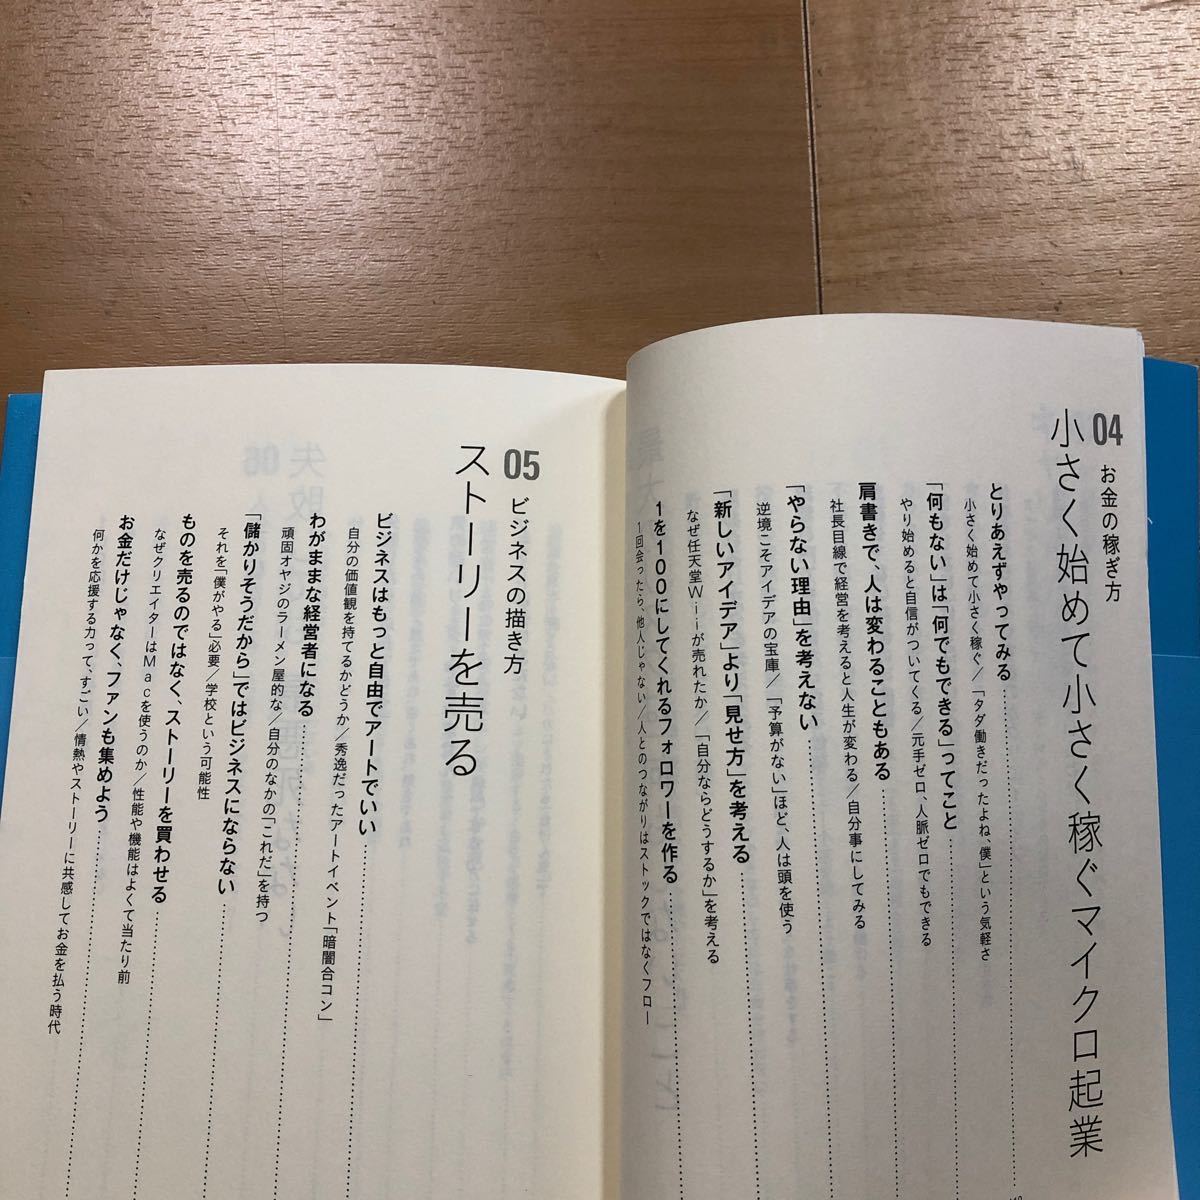 04 お金の稼ぎ方
小さく始めて小さく稼ぐマイクロ起業
とりあえずやってみる
小さく始めて小さく稼ぐ/「タダ働きだったよね、僕」という気軽さ
「何もない」は「何でもできる」ってこと
やり始めると自信がついてくる/元手ゼロ、人脈ゼロでもできる
肩書きで、人は変わることもある
社長目線で経営を考えると人生が変わる/自分事にしてみる
「やらない理由」を考えない
逆境こそアイデアの宝庫/「予算がない」ほど、人は頭を使う
「新しいアイデア」より「見せ方」を考える
なぜ任天堂Wiiが売れたか/「自分ならどうするか」を考える
1を100にしてくれるフォロワーを作る
1回会ったら、他人じゃない/人とのつながりはストックではなくフロー
05 ビジネスの描き方
ストーリーを売る
ビジネスはもっと自由でアートでいい
自分の価値観を持てるかどうか/秀逸だったアートイベント「暗闇合コン」
わがままな経営者になる
頑固オヤジのラーメン屋的な/自分のなかの「これだ」を持つ
「儲かりそうだから」ではビジネスにならない
それを「僕がやる」必要/学校という可能性
ものを売るのではなく、ストーリーを買わせる
なぜクリエイターはMacを使うのか/性能や機能はよくて当たり前
お金だけじゃなく、ファンも集めよう
何かを応援する力って、すごい/情熱やストーリーに共感してお金を払う時代